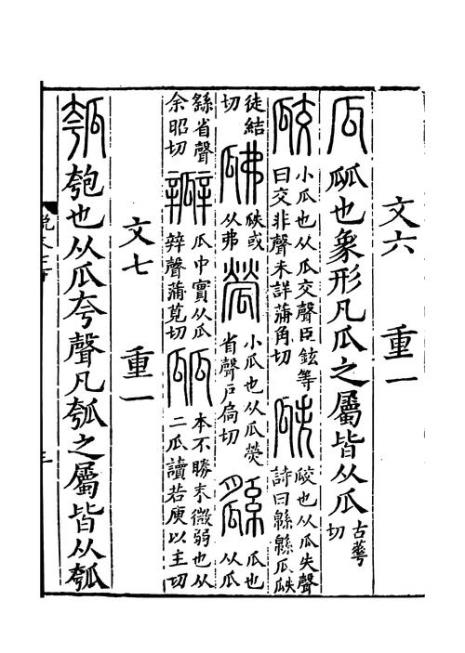 文六　重一
瓜 㼌也象形凡瓜之屬皆从瓜古華切
㼎 小瓜也从瓜交聲臣鉉等曰交非聲未詳蒲角切 瓞 㼎也从瓜失聲詩曰緜緜瓜瓞
徒結切 瓞或从弗 㼓 小瓜也从瓜熒省聲戶扃切 瓜也从瓜
繇省聲余昭切 瓣 瓜中實从瓜辡聲蒲莧切 㼌 本不勝末微弱也从二瓜讀若庾以主切
文七　重一
瓠 匏也从瓜夸聲凡瓠之屬皆从瓠
三